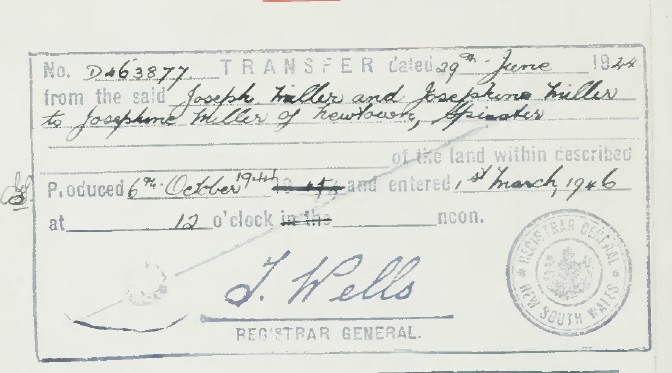 No. D463877 TRANSFER dated 29th June 1944
from the said Joseph Miller and Josephine Miller
to Josephine Miller of Newtown, Spinster
of the land within described
Produced 6th October 1944 and entered 1st March, 1946
at 12 o'clock in the noon.
J. Wells
REGISTRAR GENERAL.
REGISTRAR GENERAL
NEW SOUTH WALES